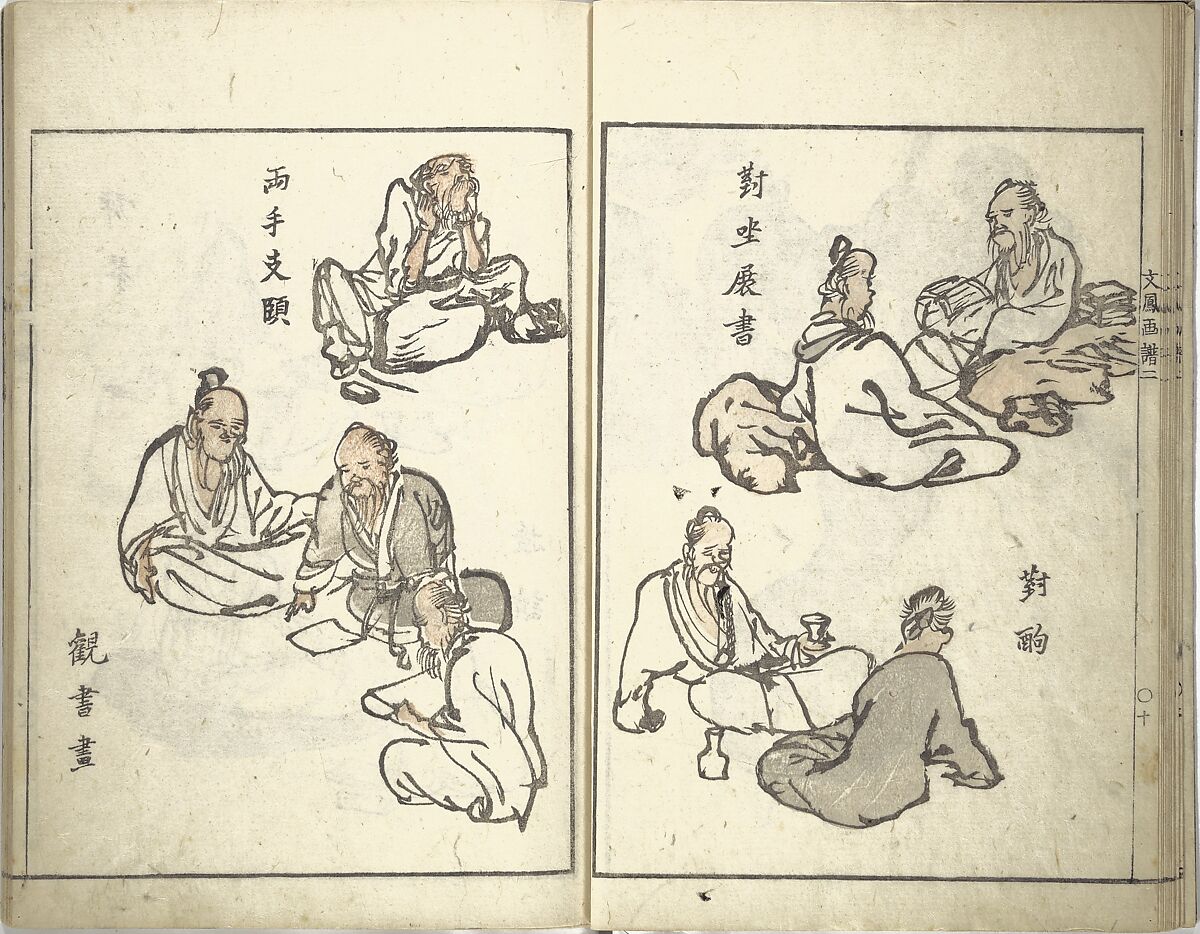 文鳳画譜二
〇十
對坐展書
對酌
両手支頤
観書畫